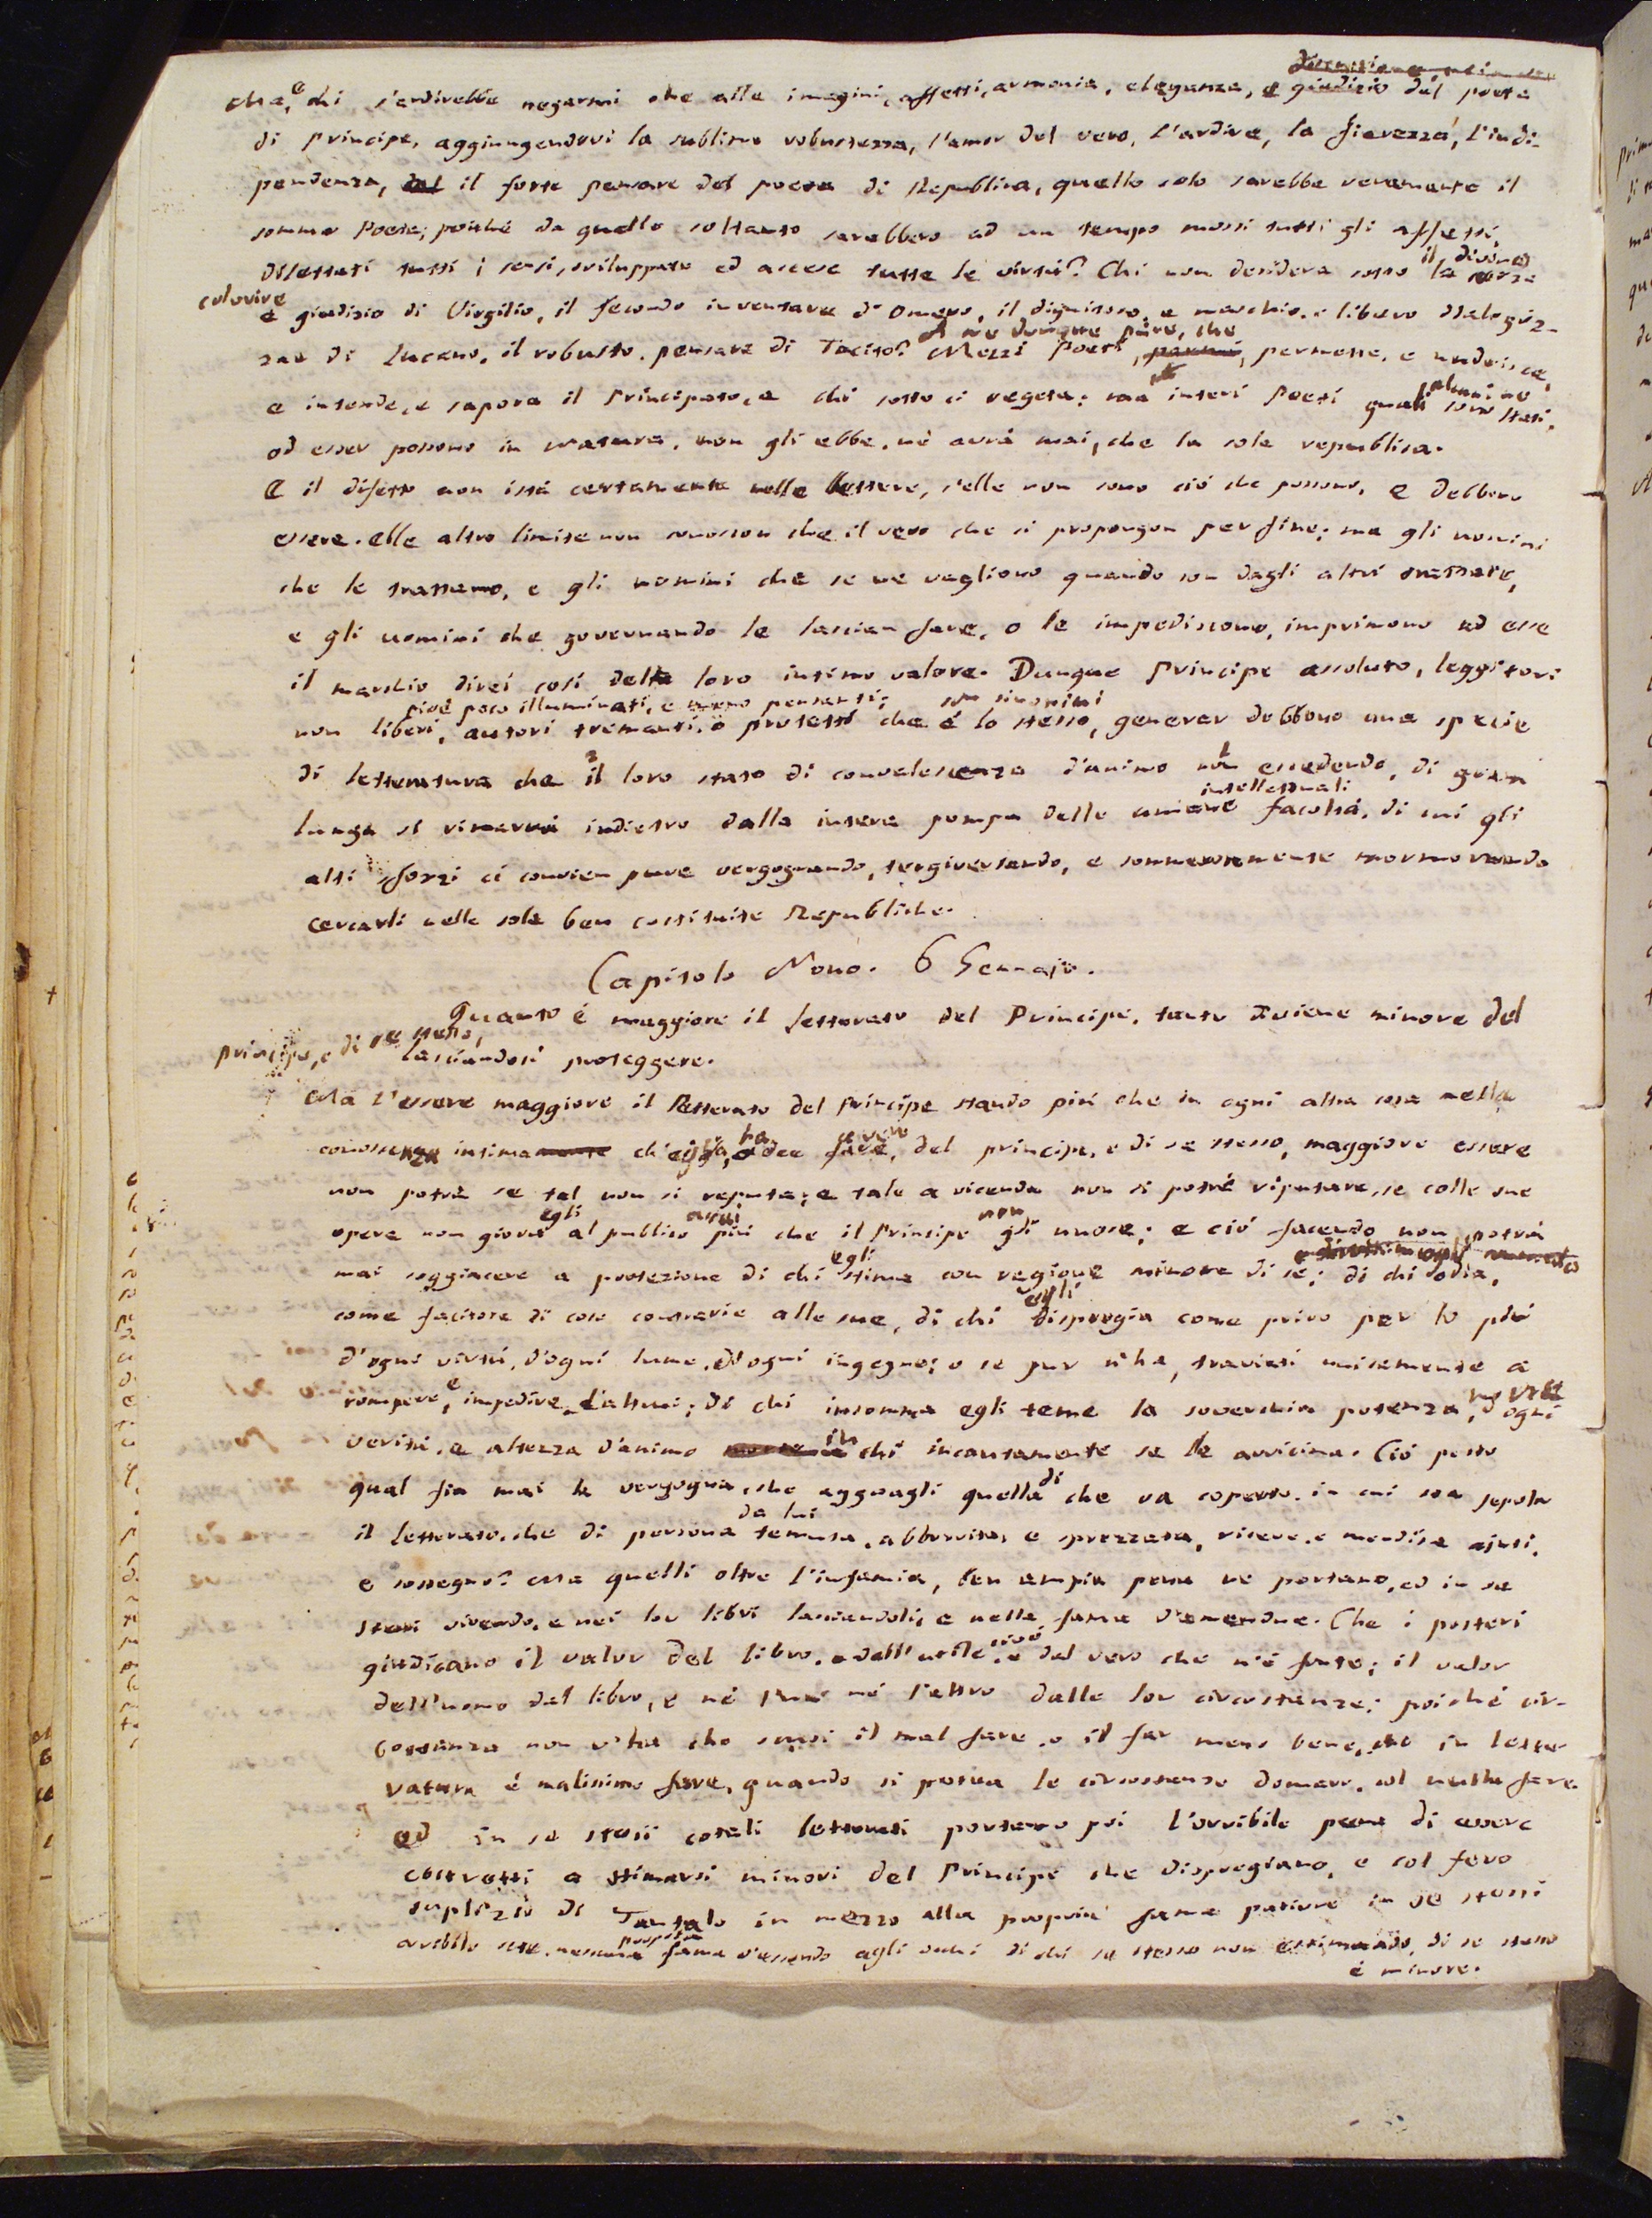 Ma, e chi s'ardirebbe negarmi che alle imagini, affetti, armonia, eleganza, e giudizio del poeta
di Principe, aggiungendovi la sublime robustezza, l'amor del vero, l'ardire, la fierezza, l'indi-
pendenza, il forte pensare del poeta di Republica, quello solo sarebbe veramente il
sommo Poeta; poiché da quello soltanto sarebbero ad un tempo mossi tutti gli affetti,
dilettati tutti i sensi, sviluppate ed accese tutte le virtù? Chi non desidera sotto il divino
colorire e giudizio di Virgilio, il fecondo inventare d'Omero, il dignitoso, e maschio, e libero dialogiz-
zar di Lucano, il robusto pensare di Tacito? A me dunque pare, che Mezzi Poeti, permette, e nudrisce,
e intende, e sapora il Principato, e chi sotto ci vegeta; ma interi Poeti quali alcuni ne sono stati,
od esser possono in natura, non gli ebbe, nè avrà mai, che la sola republica.
E il difetto non istà certamente nelle lettere, s'elle non sono ciò che possono, e debbono
essere. elle altro limite non conoscon che il vero che si propongon per fine; ma gli uomini
che le trattano, e gli uomini che se ne vagliono quando son dagli altri trattate,
e gli uomini che governando le lascian fare, o le impediscono, imprimono ad esse
il marchio direi così del loro intimo valore. Dunque Principe assoluto, leggitori
non liberi, cioè poco illuminati, e meno pensanti; autori tremanti, o protetti che son sinonimi è lo stesso, generar debbono una specie
di letteratura che il loro stato di convalescenza d'animo non eccedendo, di gran
lunga si rimarrà indietro dalla intera pompa delle umane intellettuali facoltà, di cui gli
alti sforzi ci convien pure vergognando, tergiversando, e sommessamente mormorando
cercarli nelle sole ben costituite Republiche.
Capitolo Nono. 6 Gennajo.
Quanto è maggiore il letterato del Principe, tanto diviene minore del
Principe, e di se stesso, lasciandosi proteggere.
Ma l'essere maggiore il letterato del Principe stando più che in ogni altra cosa nella
conoscenza intima ch'egli ha, o dee avere, del principe, e di se stesso, maggiore essere
non potrà se tal non si reputa; e tale a vicenda non si potrà riputare, se colle sue
opere non giova egli al publico assai più che il Principe non gli nuoce; e ciò facendo non potrà
mai soggiacere a protezione di chi egli stima con ragione minore di se; di chi odia,
come facitore di cose contrarie alle sue, di chi egli dispregia come privo per lo più
d'ogni virtù, d'ogni lume, d'ogni ingegno; o se pur n'ha, traviati unicamente a
rompere, e impedire l'altrui; di chi insomma egli teme la soverchia potenza, d'ogni
verità, e altezza d'animo in chi incautamente se le avvicina. Ciò posto
qual fia mai la vergogna, che agguagli quella di che va coperto, in cui sta sepolto
il letterato, che di persona da lui temuta, abborrita, e sprezzata, riceve, e mendica ajuti,
e sostegno? Ma quelli oltre l'infamia, ben ampia pena ne portano, ed in se
stessi vivendo, e nei lor libri lasciandoli, e nella fama d'amendue. Che i posteri
giudicano il valor del libro, dall'utile, cioè dal vero che n'è fonte; il valor
dell'uomo dal libro, e né l'un né l'altro dalle lor circostanze; poiché cir-
costanza non v'ha che scusi il mal fare, o il far meno bene, che in lette-
ratura è malissimo fare, quando si potea le circostanze domare, col nulla fare.
ed in se stessi cotali letterati portano poi l'orribile pena di essere
costretti a stimarsi minori del Principe che dispregiano, e col fero
suplizio di Tantalo in mezzo alla propria fama patirne in se stessi
orribile sete, nessuna propria fama v'essendo agli occhi di chi se stesso non estimando, di se stesso
è minore.